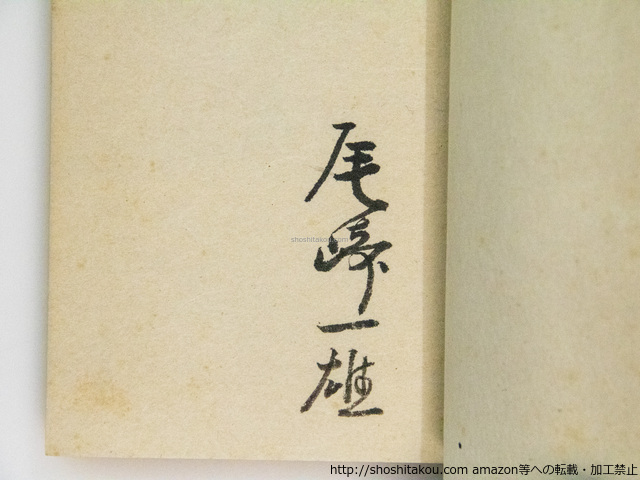 尾崎一雄
shoshitakou.com
http://shoshitakou.com amazon等への転載・加工禁止